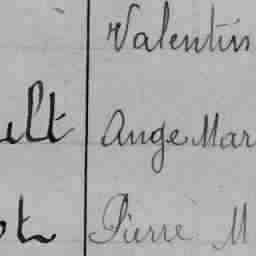 Valentin
Ange Mar
Pierre M